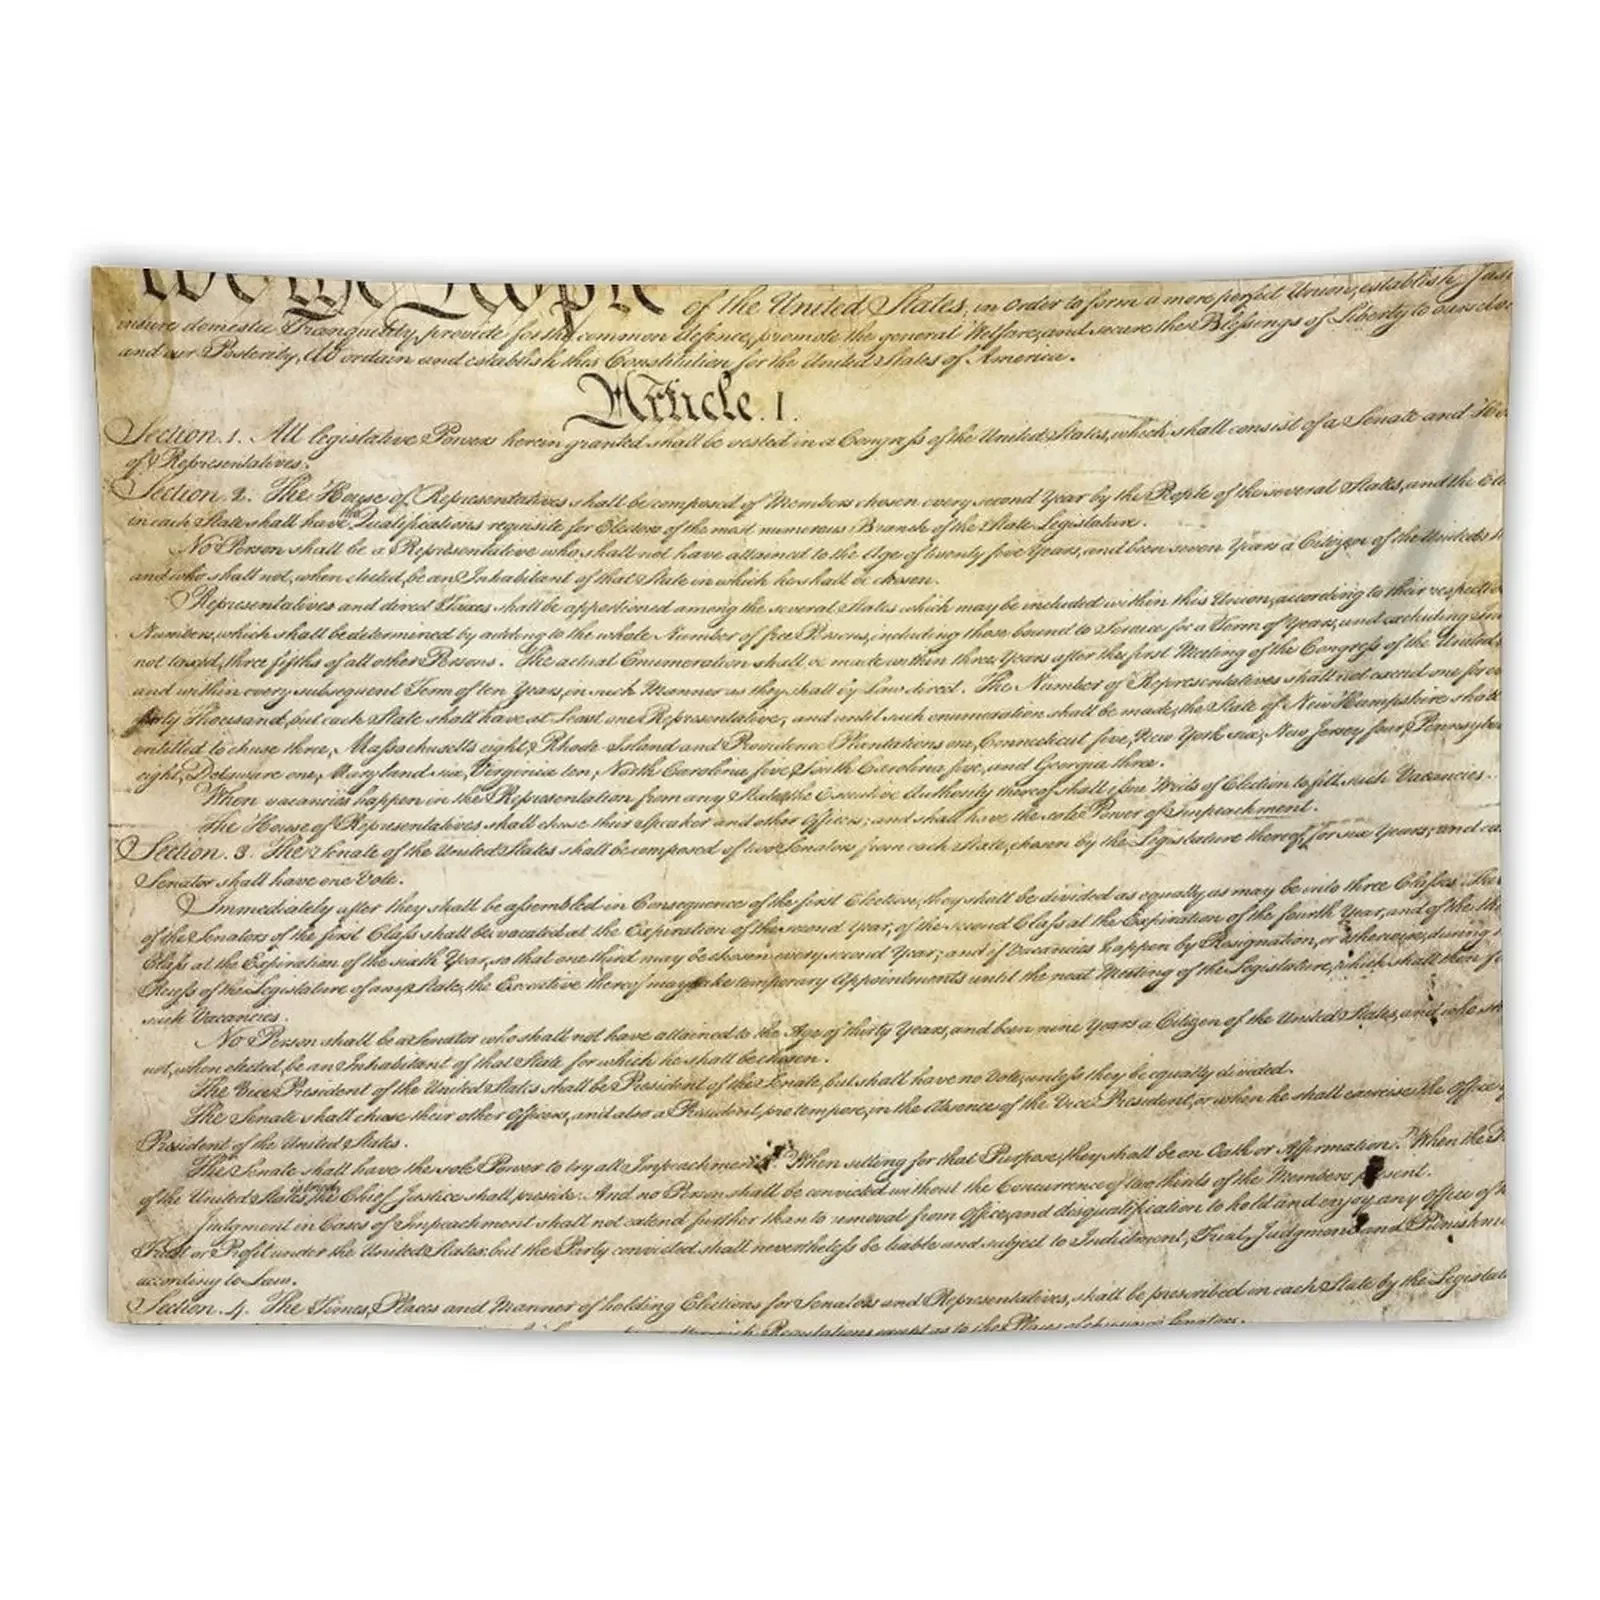 We the People of the United States, in Order to form a more perfect Union, establish Jus
insure domestic Tranquility, provide for the common defence, promote the general Welfare, and secure the Blessings of Liberty to ourselve
and our Posterity, do ordain and establish this Constitution for the United States of America.
Article. I.
Section. 1. All legislative Powers herein granted shall be vested in a Congress of the United States, which shall consist of a Senate and Ho
of Representatives.
Section. 2. The House of Representatives shall be composed of Members chosen every second Year by the People of the several States, and the Ele
in each State shall have the Qualifications requisite for Electors of the most numerous Branch of the State Legislature.
No Person shall be a Representative who shall not have attained to the Age of twenty five Years, and been seven Years a Citizen of the United St
and who shall not, when elected, be an Inhabitant of that State in which he shall be chosen.
Representatives and direct Taxes shall be apportioned among the several States which may be included within this Union, according to their respective
Numbers, which shall be determined by adding to the whole Number of free Persons, including those bound to Service for a Term of Years, and excluding Ind
not taxed, three fifths of all other Persons. The actual Enumeration shall be made within three Years after the first Meeting of the Congress of the United
and within every subsequent Term of ten Years, in such Manner as they shall by Law direct. The Number of Representatives shall not exceed one for e
thirty Thousand, but each State shall have at Least one Representative; and until such enumeration shall be made, the State of New Hampshire shall
entitled to chuse three, Massachusetts eight, Rhode-Island and Providence Plantations one, Connecticut five, New-York six, New Jersey four, Pennsylva
eight, Delaware one, Maryland six, Virginia ten, North Carolina five, South Carolina five, and Georgia three.
When vacancies happen in the Representation from any State, the Executive Authority thereof shall issue Writs of Election to fill such Vacancies.
The House of Representatives shall chuse their Speaker and other Officers; and shall have the sole Power of Impeachment.
Section. 3. The Senate of the United States shall be composed of two Senators from each State, chosen by the Legislature thereof, for six Years; and ea
Senator shall have one Vote.
Immediately after they shall be assembled in Consequence of the first Election, they shall be divided as equally as may be into three Classes. The
of the Senators of the first Class shall be vacated at the Expiration of the second Year, of the second Class at the Expiration of the fourth Year, and of the thi
Class at the Expiration of the sixth Year, so that one third may be chosen every second Year; and if Vacancies happen by Resignation, or otherwise, during
Recess of the Legislature of any State, the Executive thereof may make temporary Appointments until the next Meeting of the Legislature, which shall then f
such Vacancies.
No Person shall be a Senator who shall not have attained to the Age of thirty Years, and been nine Years a Citizen of the United States, and who sh
not, when elected, be an Inhabitant of that State for which he shall be chosen.
The Vice President of the United States shall be President of the Senate, but shall have no Vote, unless they be equally divided.
The Senate shall chuse their other Officers, and also a President pro tempore, in the Absence of the Vice President, or when he shall exercise the Office
President of the United States.
The Senate shall have the sole Power to try all Impeachments. When sitting for that Purpose, they shall be on Oath or Affirmation. When the P
of the United States is tried, the Chief Justice shall preside: And no Person shall be convicted without the Concurrence of two thirds of the Members present.
Judgment in Cases of Impeachment shall not extend further than to removal from Office, and disqualification to hold and enjoy any Office of
Trust or Profit under the United States: but the Party convicted shall nevertheless be liable and subject to Indictment, Trial, Judgment and Punishm
according to Law.
Section. 4. The Times, Places and Manner of holding Elections for Senators and Representatives, shall be prescribed in each State by the Legislat
such Regulations, except as to the Places of chusing Senators.